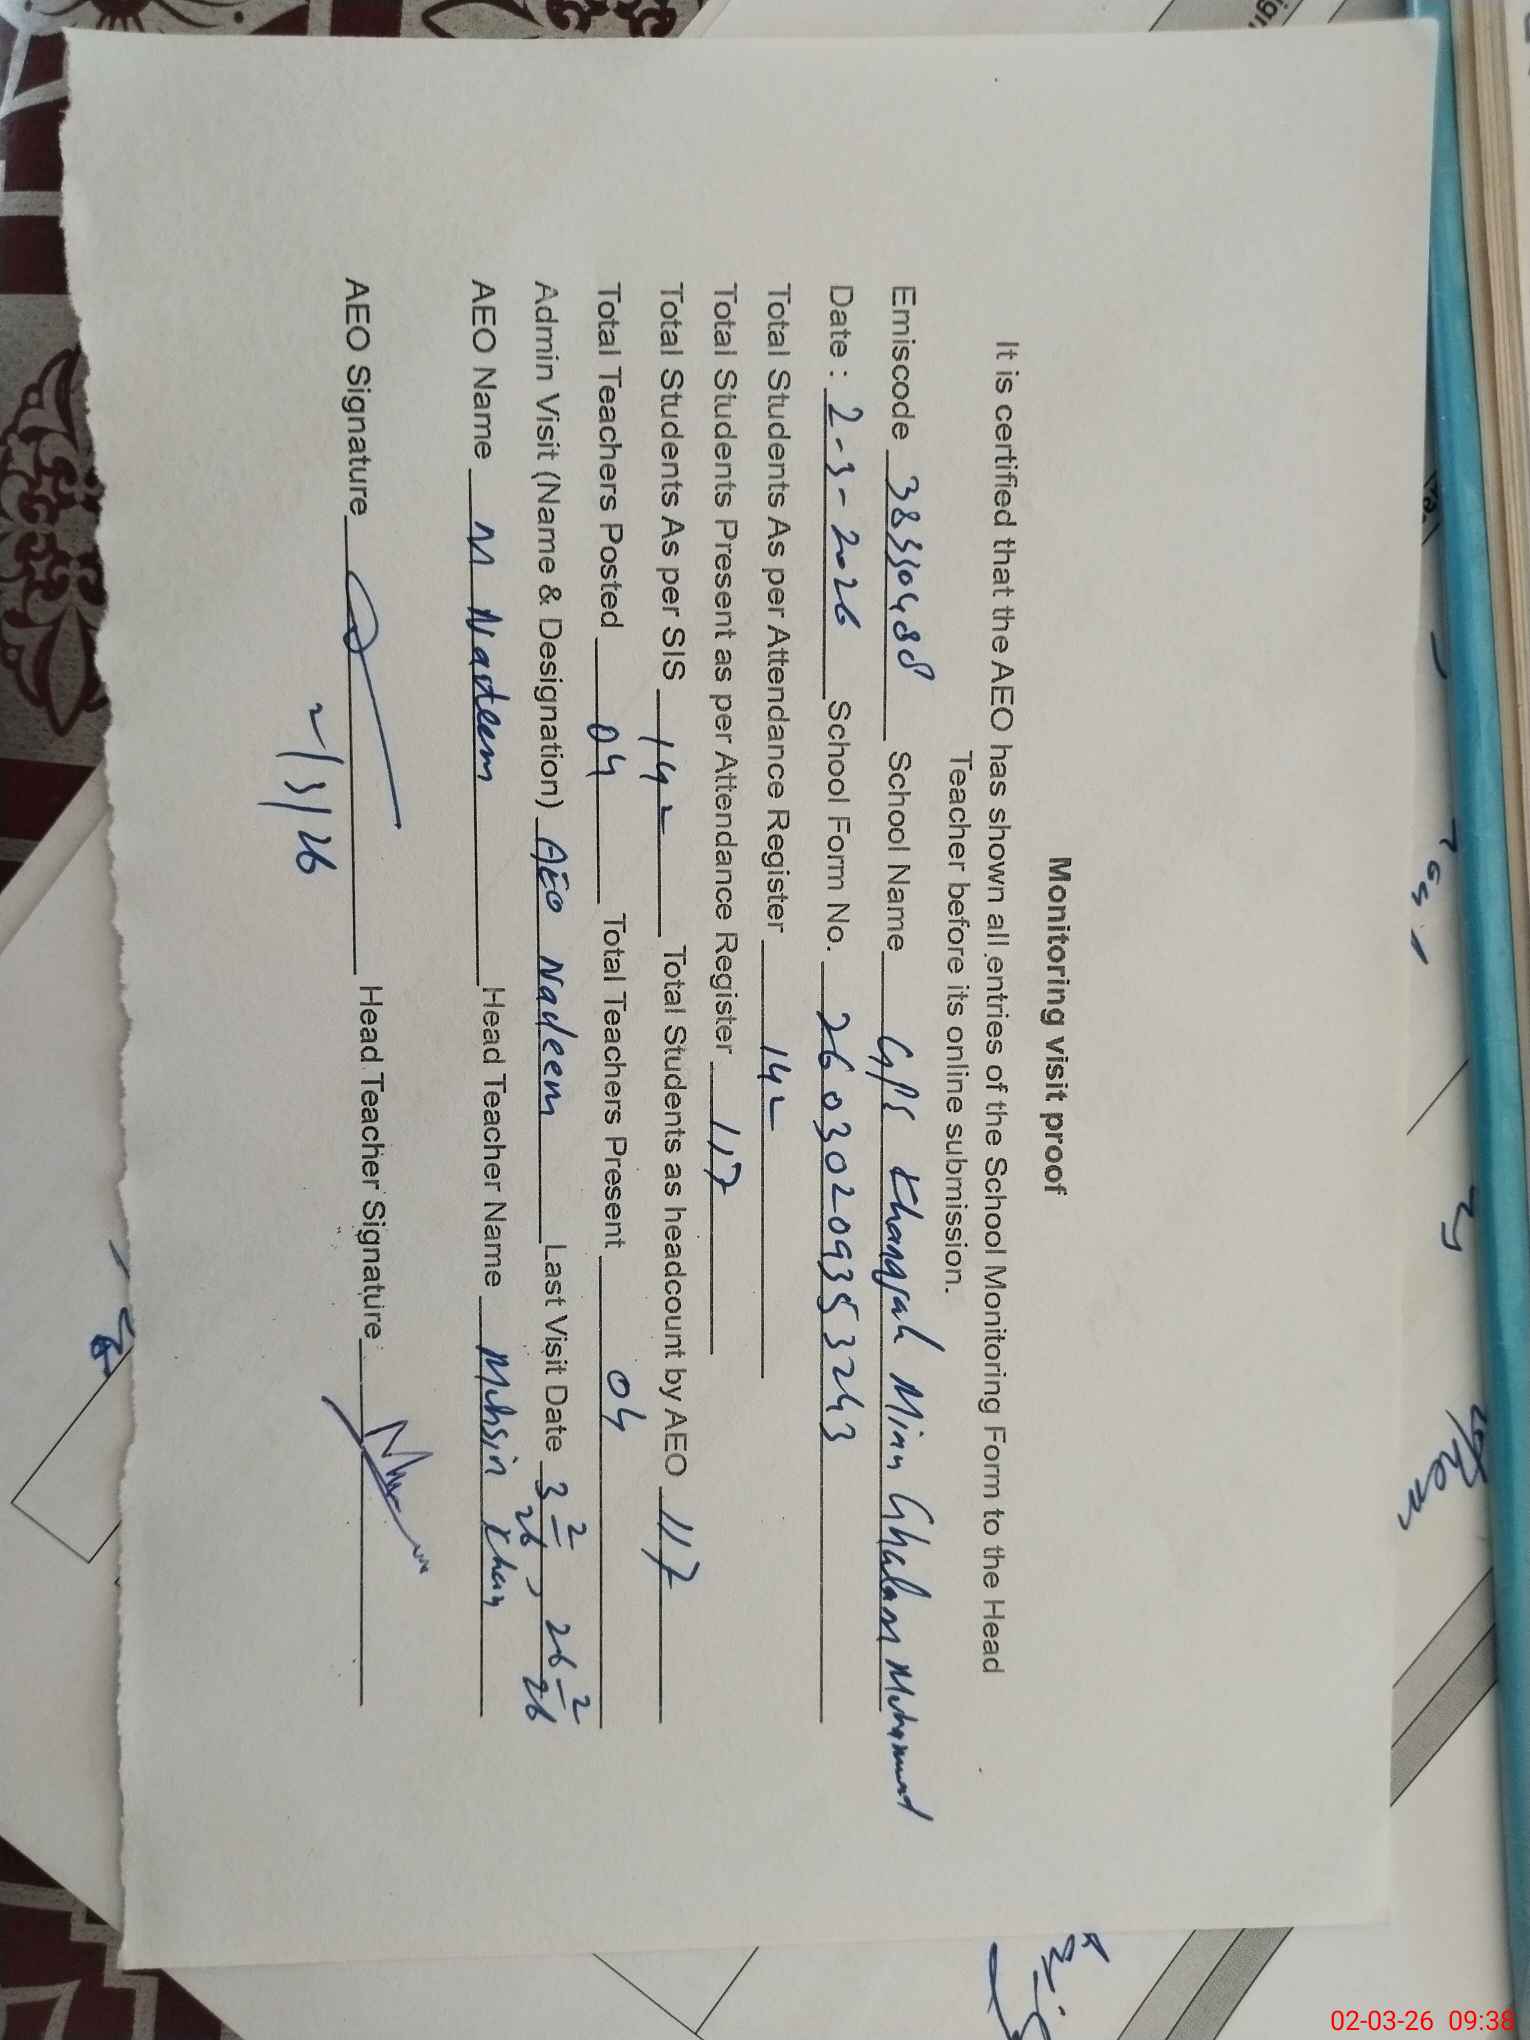 Monitoring visit proof
It is certified that the AEO has shown all entries of the School Monitoring Form to the Head
Teacher before its online submission.
Emiscode 38330488 School Name GPS Khanqah Mian Ghulam Muhammad
Date : 2-3-2026 School Form No. 26030209353243
Total Students As per Attendance Register 142
Total Students Present as per Attendance Register 117
Total Students As per SIS 142 Total Students as headcount by AEO 117
Total Teachers Posted 04 Total Teachers Present 04
Admin Visit (Name & Designation) AEO Nadeem Last Visit Date 3 2/26, 26 2/26
AEO Name M Nadeem Head Teacher Name Muhsin Khan
AEO Signature Head Teacher Signature
2/3/26
02-03-26 09:38